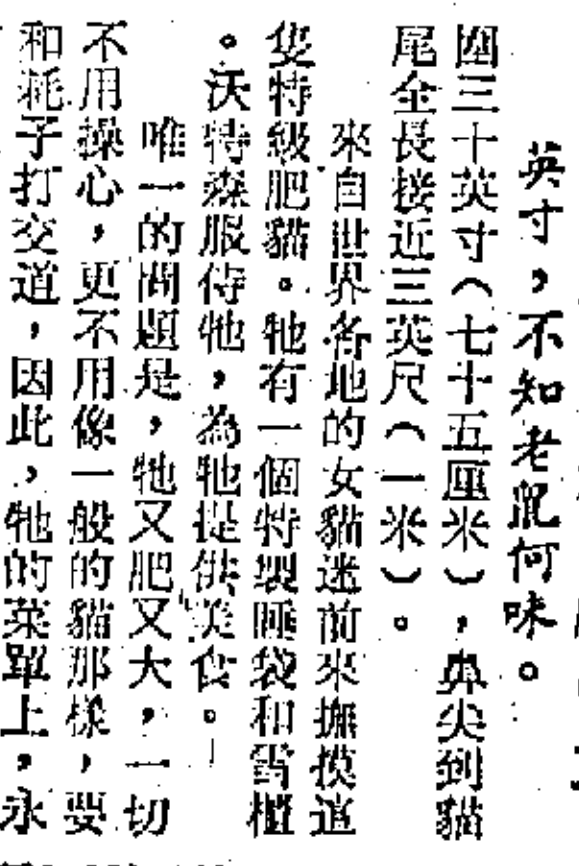 英寸，不知老鼠何味。
圍三十英寸（七十五厘米），鼻尖到貓
尾全長接近三英尺（一米）。
來自世界各地的女貓迷前來撫摸這
隻特級肥貓。牠有一個特製睡袋和雪櫃
。沃特森服侍牠，為牠提供美食。
唯一的問題是，牠又肥又大，一切
不用操心，更不用像一般的貓那樣，要
和耗子打交道，因此，牠的菜單上，永